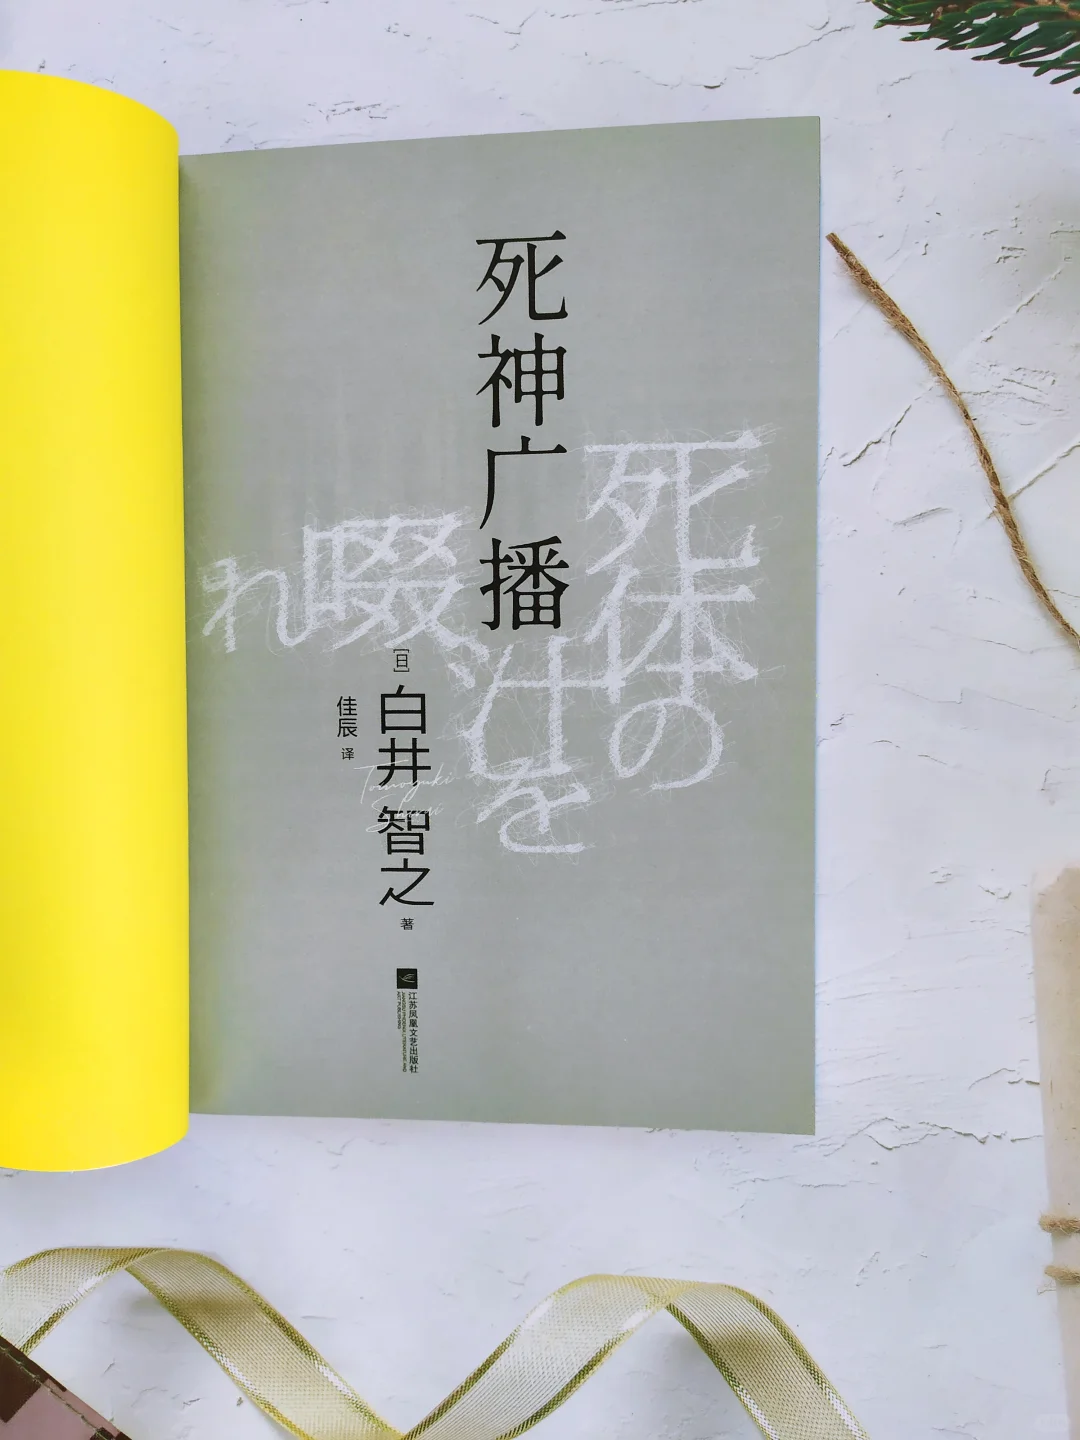 死神广播
死体の
汁を
啜れ
[日]
白井智之
著
Tomoyuki
Shirai
佳辰 译
江苏凤凰文艺出版社
JIANGSU PHOENIX LITERATURE AND
ART PUBLISHING